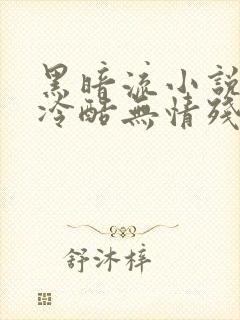 黑暗流小說
冷酷無情殘
舒沐梓